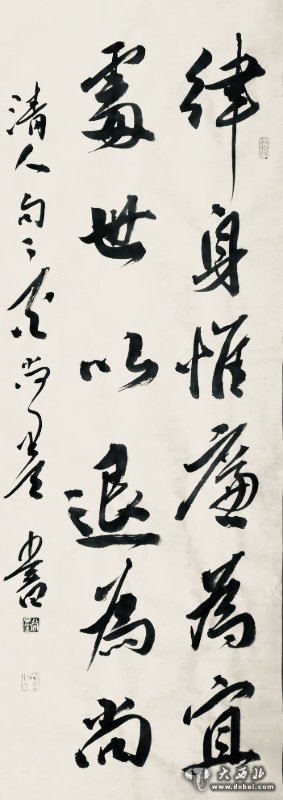 律身惟廉為宜
處世以退為尚
清人句
書
大西北
www.dxbei.com